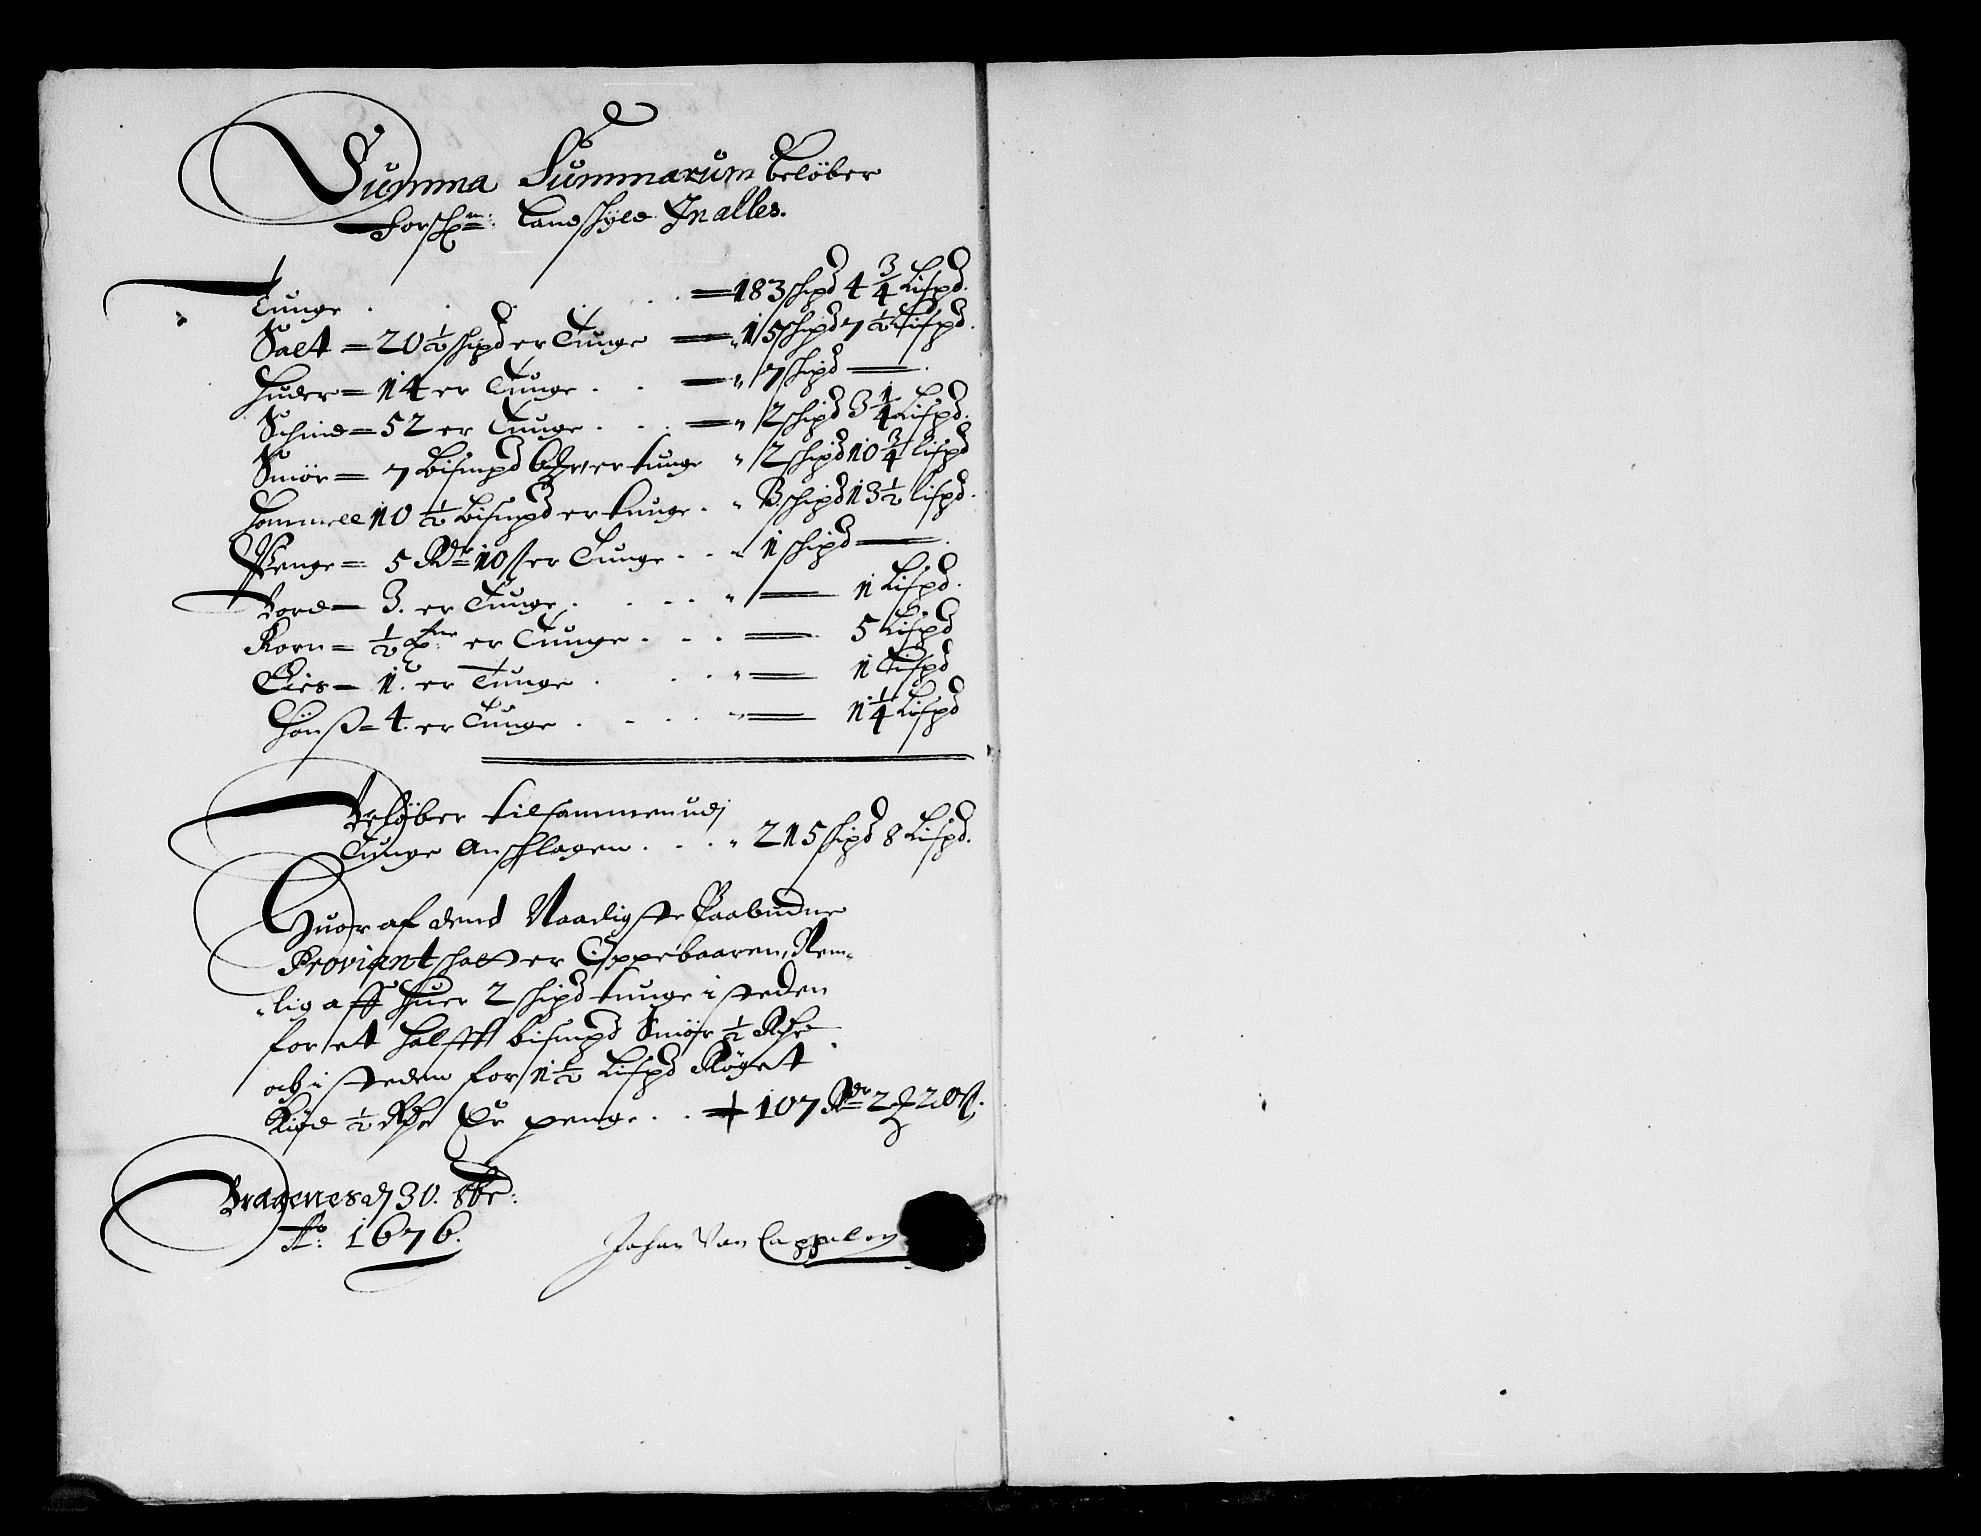 Summa Summarum beløber
forsch^m: Landschyld Jnalles.
Tunge . . . . . = 183 schipd 4 3/4 Lispd.
Salt = 20 1/2 schipd er Tunge = " 15 schipd 7 1/2 Lispd.
Huder = 14 er Tunge . . = " 7 schipd — .
Schind = 52 er Tunge . . . = " 2 schipd 3 1/4 Lispd.
Smör = 7 Bismpd er tunge " 2 schipd 10 3/4 lispd
Hommell 10 1/2 Bismpd er tunge . " 3 schipd 13 1/2 lispd.
Penge = 5 Rdr 10 ß er Tunge . . " 1 schipd — .
Bord = 3. er Tunge . . . . " — 1 Lispd.
Korn = 1/2 Tne er Tunge . . . — 5 Lispd
Gies = 1. er Tunge . . . " — 1 Lispd
Hönß = 4. er Tunge . . . . " — 1 1/4 Lispd
Beløber tilsammen udj
Tunge Anschlagen . . . " 215 schipd 8 Lispd.
Huor af dend Naadigste Paabudne
Proviant schatt er Oppebaaren, Nem-
lig aff Huer 2 schipd tunge i steden
for et halfft bismpd Smör 1/2 Rdr
och i steden for 1 1/2 Lispd Røget
Kiød 1/2 Rdr Er penge . . 107 Rdr 2 ₰ 20 ß.
Bragenes dj 30. 8br:
Ao: 1676.
Johan Van Cappelen